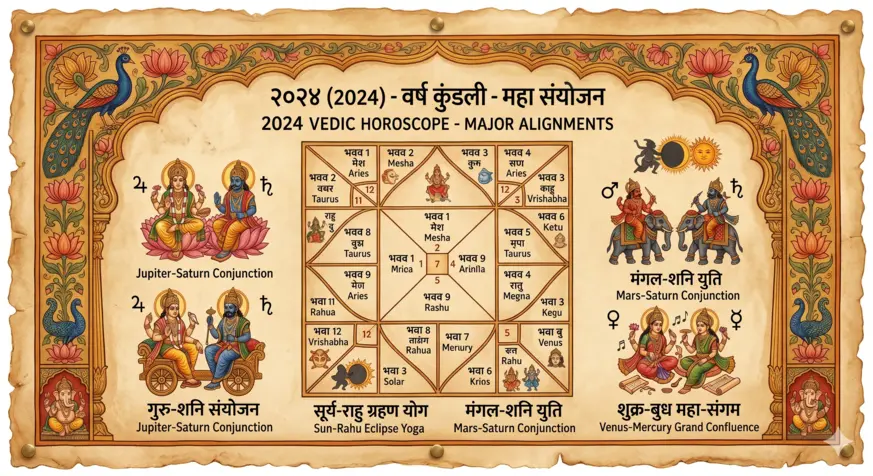 २०२४ (2024) - वर्ष कुंडली - महा संयोजन
2024 VEDIC HOROSCOPE - MAJOR ALIGNMENTS
♃ ♄
Jupiter-Saturn Conjunction
♃ ♄
गुरु-शनि संयोजन
Jupiter-Saturn Conjunction
भवव 1
मेश
Aries
भवव 2
Mesha
भवव 3
कुम
भवव 4
सण
Aries
भवव 2
वषर
Taurus
12
11
12
3
भवव 3
काहु
Vrishabha
राहु
वु
भवव 8
वुश्न
Taurus
भवव 1
मेश
Mesha
2
भवव 5
मृपा
Taurus
भवव 6
Ketu
भवव 1
Mrica
1
7
4
भवव 9
Arinlla
5
भवव 9
मेण
Aries
भवव 9
Rashu
भवव 4
रातु
Megna
भवा 11
Rahua
भवा 3
Kegu
भवा 12
Vrishabha
12
भवा 8
Rahua
भवा 7
Menury
5
Rahu
भवा बु
Venus
भवा 3
Solar
भवा 6
Krios
सूर्य-राहु ग्रहण योग
Sun-Rahu Eclipse Yoga
मंगल-शनि युति
Mars-Saturn Conjunction
♂ ♄
मंगल-शनि युति
Mars-Saturn Conjunction
♀ ☿
शुक्र-बुध महा-संगम
Venus-Mercury Grand Confluence